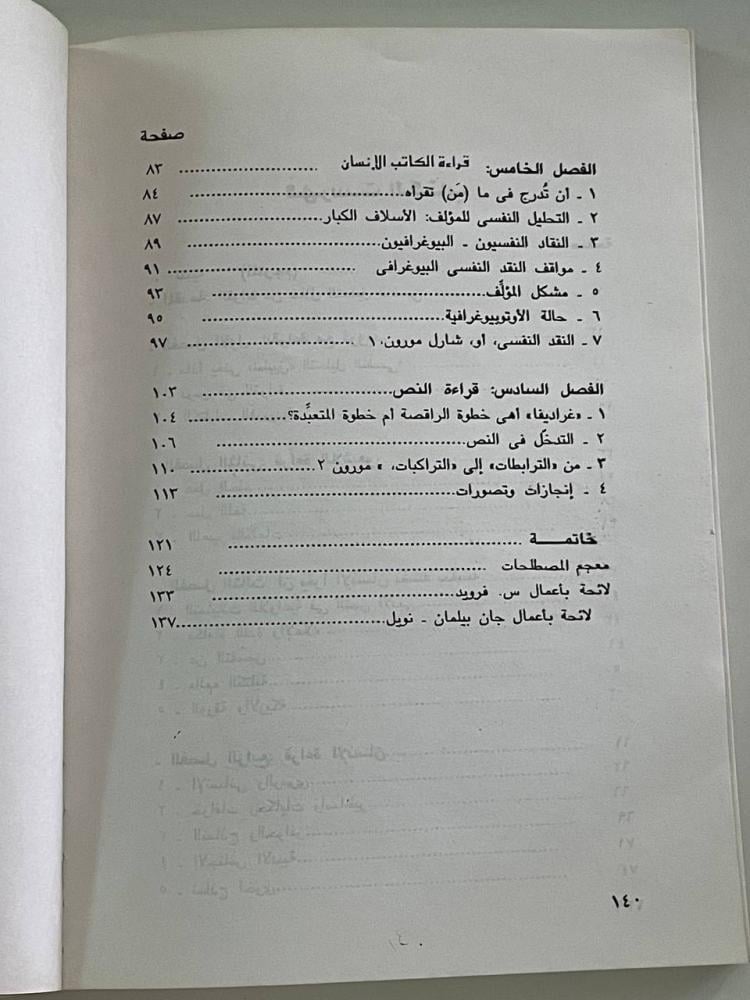 صفحة
الفصل الخامس: قراءة الكاتب الإنسان ........................ ٨٣
١ ـ أن تُدرج فى ما (مَن) تقرأه ........................ ٨٤
٢ ـ التحليل النفسى للمؤلف: الأسلاف الكبار ........................ ٨٧
٣ ـ النقاد النفسيون ـ البيوغرافيون ........................ ٨٩
٤ ـ مواقف النقد النفسى البيوغرافى ........................ ٩١
٥ ـ مشكل المؤلِّف ........................ ٩٣
٦ ـ حالة الأوتوبيوغرافية ........................ ٩٥
٧ ـ النقد النفسى، أو، شارل مورون، ١ ........................ ٩٧
الفصل السادس: قراءة النص ........................ ١٠٣
١ ـ «غراديفا» أهى خطوة الراقصة أم خطوة المتعبِّدة؟ ........................ ١٠٤
٢ ـ التدخّل فى النص ........................ ١٠٦
٣ ـ من «الترابطات» إلى «التراكبات، » مورون ٢ ........................ ١١٠
٤ ـ إنجازات وتصورات ........................ ١١٣
خاتمـــة ........................ ١٢١
معجم المصطلحات ........................ ١٢٤
لائحة بأعمال س. فرويد ........................ ١٣٣
لائحة بأعمال جان بيلمان ـ نويل ........................ ١٣٧
١٤٠